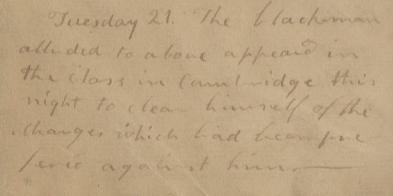 Tuesday 21. The blackman
alluded to above appeard in
the class in Cambridge this
night to clear himself of the
charges which had been pre
fered against him —